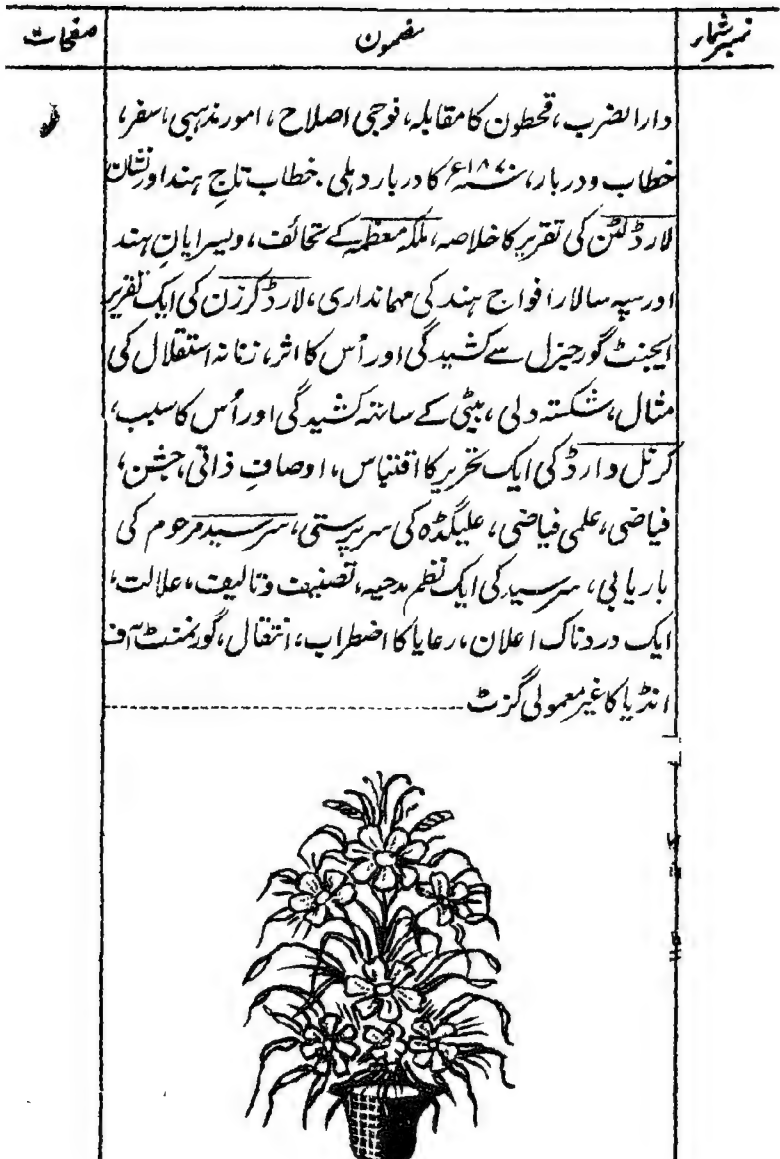 نمبر شمار مضمون صفحات
دارالضرب، قحطون کا مقابلہ، فوجی اصلاح، امور مذہبی، سفر،
خطاب و دربار، سنہ ۱۸۷۷ء کا دربار دہلی. خطاب تاج ہند اور نشان
لارڈ لٹن کی تقریر کا خلاصہ، ملکہ معظمہ کے تحائف، ویسرایانِ ہند
اور سپہ سالار افواج ہند کی مہمانداری، لارڈ کرزن کی ایک تقریر
ایجنٹ گورجنرل سے کشیدگی اور اُس کا اثر، زنانہ استقلال کی
مثال، شکستہ دلی، بیٹی کے ساتہ کشیدگی اور اُس کا سبب،
کرنل وارڈ کی ایک تحریر کا اقتباس، اوصافِ ذاتی، جشن،
فیاضی، علمی فیاضی، علیگڈہ کی سرپرستی، سرسید مرحوم کی
باریابی، سرسید کی ایک نظم مدحیہ، تصنیف و تالیف، علالت،
ایک دردناک اعلان، رعایا کا اضطراب، انتقال، گورنمنٹ آف
انڈیا کا غیر معمولی گزٹ